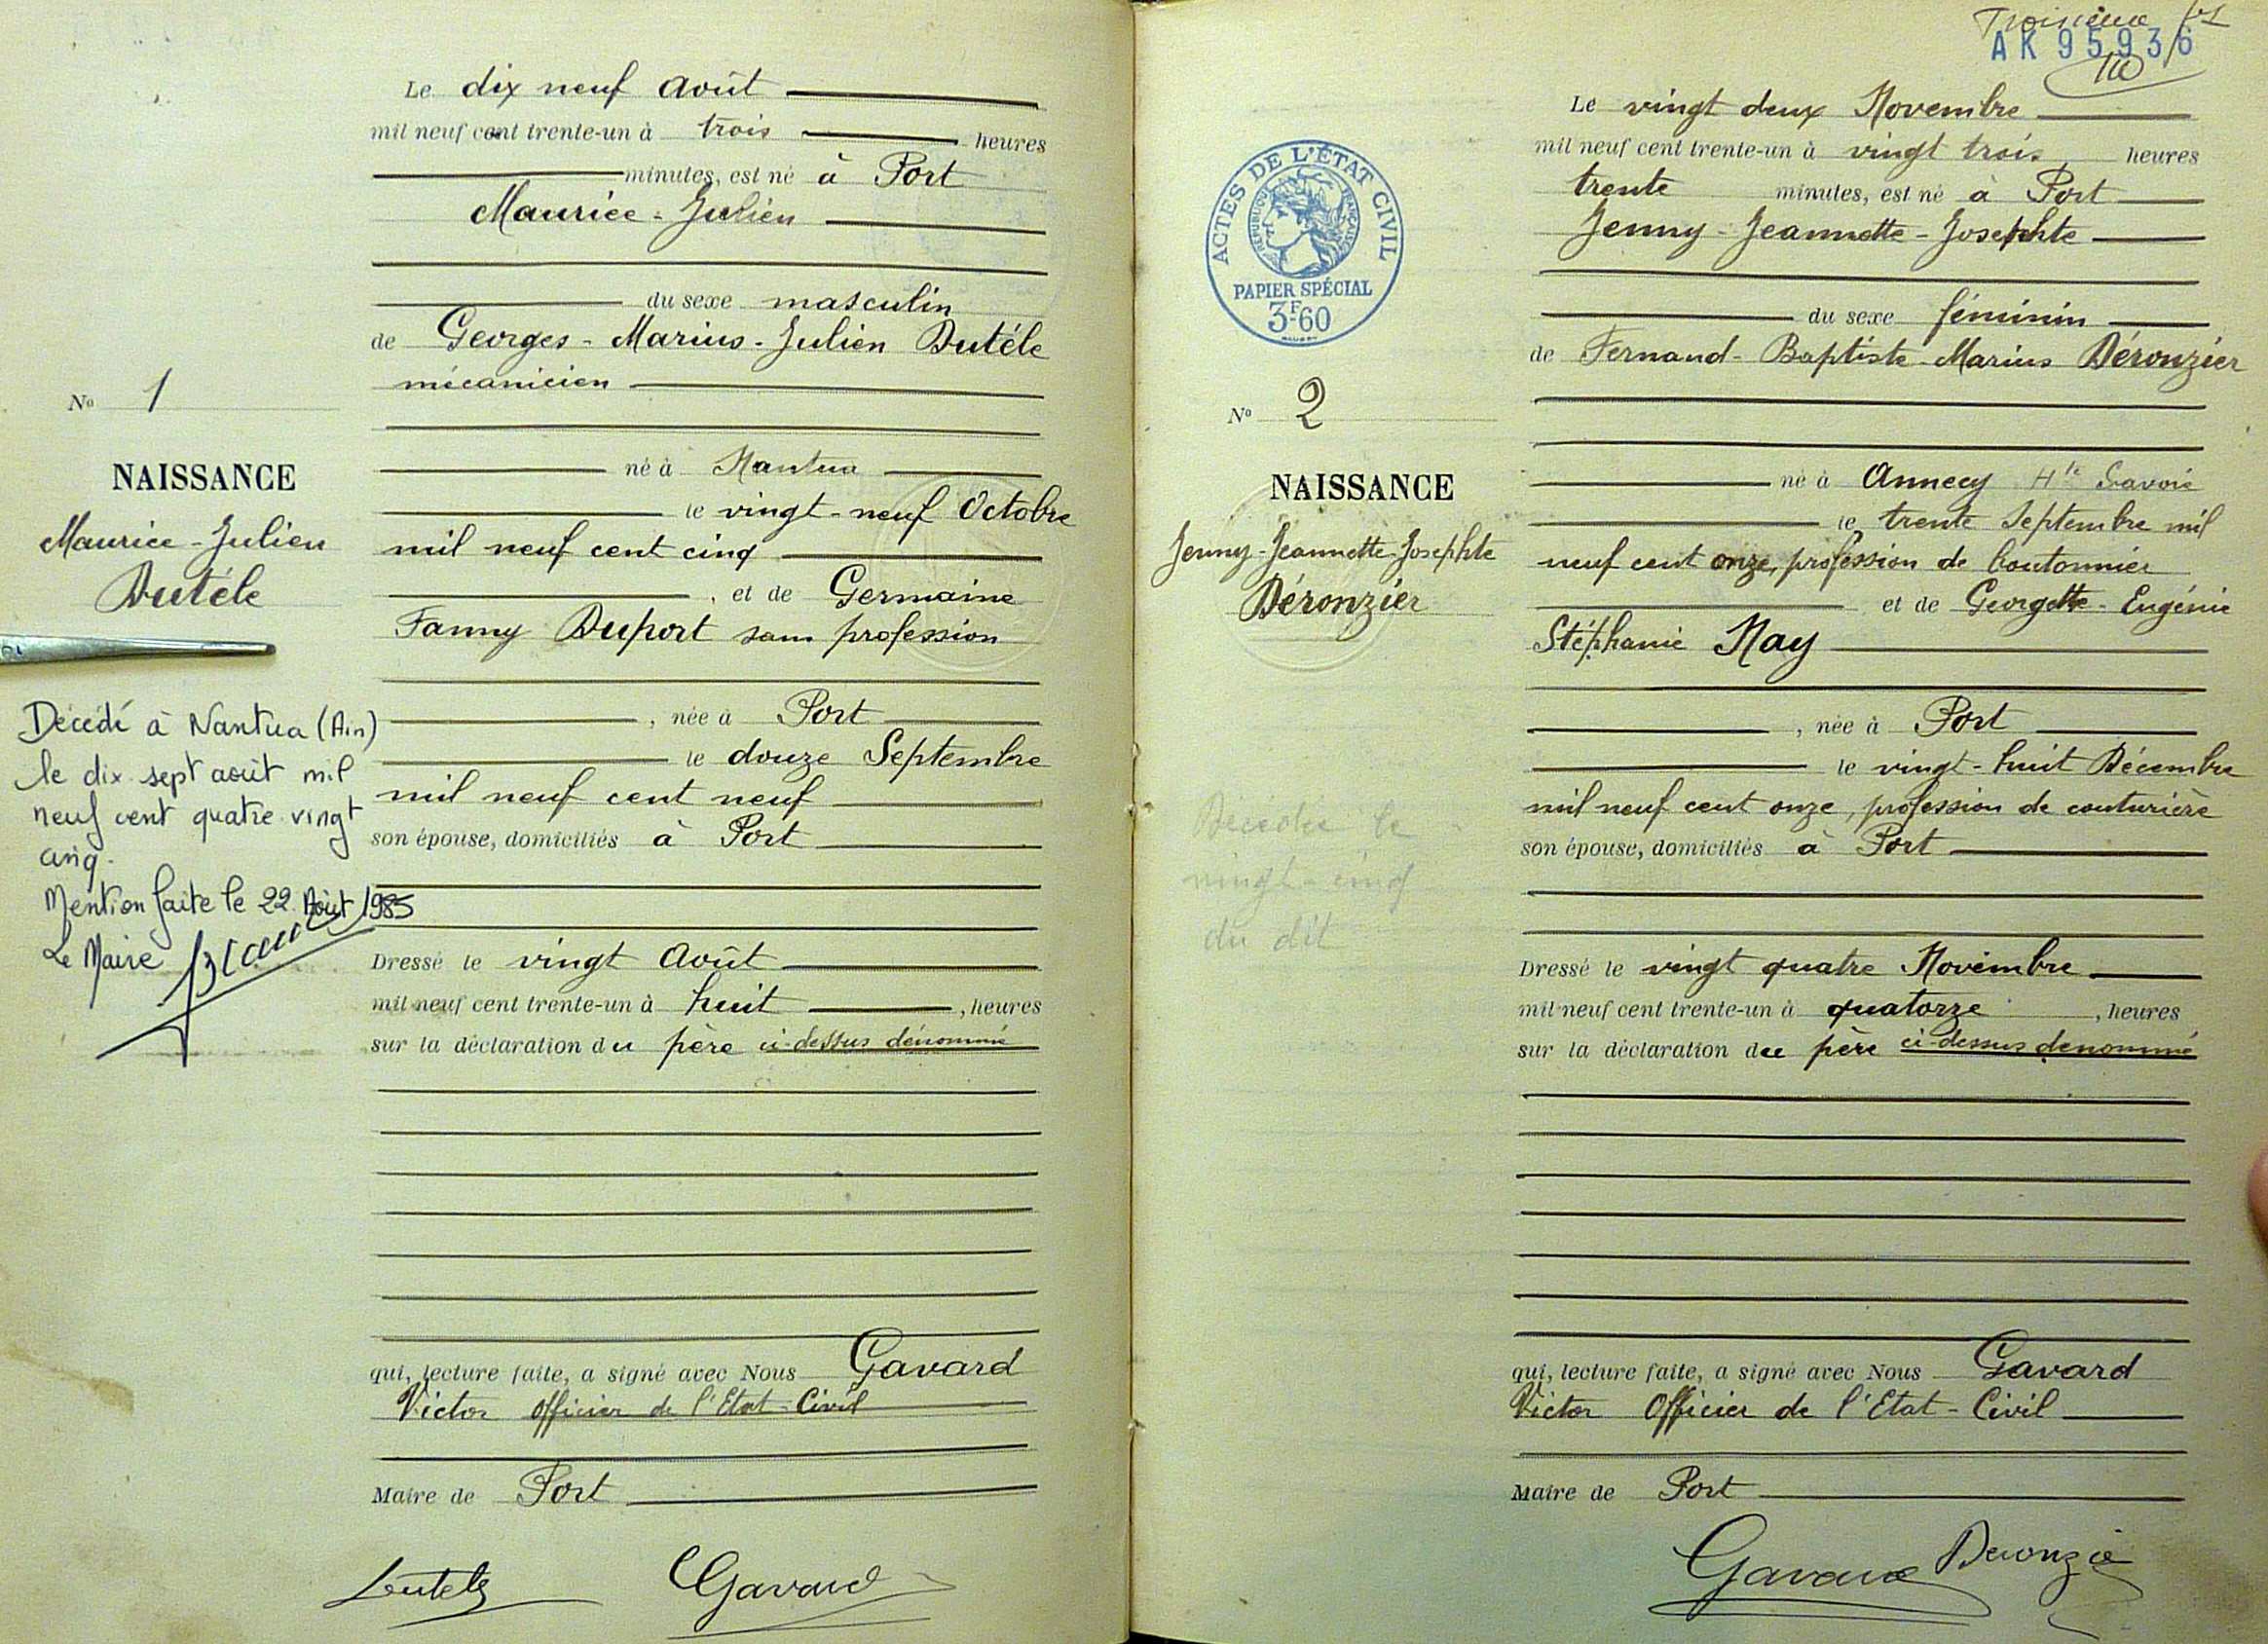 Le dix neuf Août
mil neuf cent trente-un à trois heures
minutes, est né à Port
Maurice - Julien
du sexe masculin
de Georges - Marius - Julien Dutéle
mécanicien
né à Nantua
le vingt - neuf Octobre
mil neuf cent cinq
, et de Germaine
Fanny Duport sans profession
, née à Port
le douze Septembre
mil neuf cent neuf
son épouse, domiciliés à Port
Dressé le vingt Août
mil neuf cent trente-un à huit , heures
sur la déclaration du père ci-dessus dénommé
qui, lecture faite, a signé avec Nous Gavard
Victor Officier de l'Etat - Civil
Maire de Port
Dutele Gavard
N° 1
NAISSANCE
Maurice - Julien
Dutéle
Décédé à Nantua (Ain)
le dix sept août mil
neuf cent quatre vingt
cinq.
Mention faite le 22 Août 1985
Le Maire
Troisième
AK 95936
Le vingt deux Novembre
mil neuf cent trente-un à vingt trois heures
trente minutes, est né à Port
Jenny - Jeannette - Josephte
du sexe féminin
de Fernand - Baptiste - Marius Déronzier
né à Annecy Hte Savoie
le trente Septembre mil
neuf cent onze, profession de boutonnier
et de Georgette - Eugénie
Stéphanie Nay
, née à Port
le vingt - huit Décembre
mil neuf cent onze, profession de couturière
son épouse, domiciliés à Port
Dressé le vingt quatre Novembre
mil neuf cent trente-un à quatorze , heures
sur la déclaration du père ci-dessus dénommé
qui, lecture faite, a signé avec Nous Gavard
Victor Officier de l'Etat - Civil
Maire de Port
Gavard Deronzier
ACTES DE L'ÉTAT CIVIL
RÉPUBLIQUE FRANÇAISE
PAPIER SPÉCIAL
3F-60
N° 2
NAISSANCE
Jenny - Jeannette - Josephte
Déronzier
Décédée le
vingt - cinq
du dit